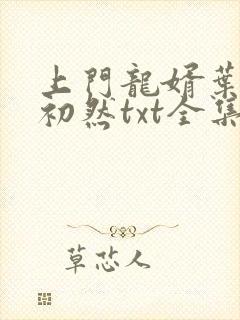 上門龍婿葉
初然txt全集
草芯人